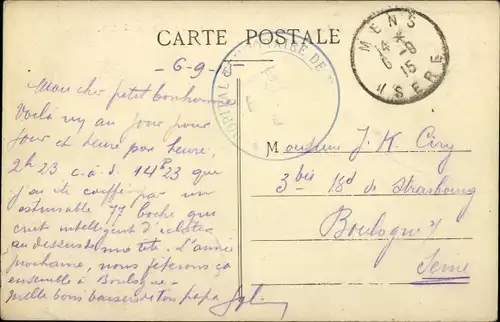 CARTE POSTALE
MENS
14 * 8
6 - 15
ISERE
HOPITAL TAIRE DE
6-9-
Mon cher petit bonhomme
Voilà un an jour pour
jour et heure par heure,
2h 23 c-à-d 14h 23 que
j'ai été coiffé par un
77 boche qui
crut intelligent d'éclater
au dessus de ma tête. L'année
prochaine, nous fêterons ça
ensemble à Boulogne
mille bons baisers de ton papa
Monsieur J. K.
3 bis Bd de Strasbourg
Boulogne s/
Seine